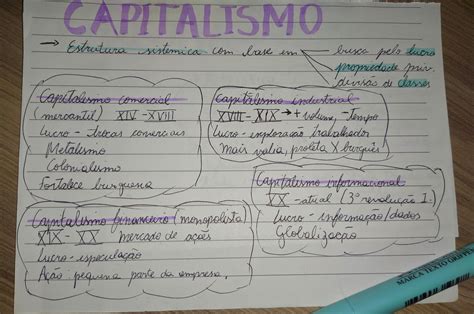 CAPITALISMO
→ Estrutura sistemica com base em
busca pelo lucro
propriedade priv.
divisão de classes
Capitalismo comercial
(mercantil) XIV - XVIII
Lucro - trocas comerciais
Metalismo
Colonialismo
Fortalece burguesia
Capitalismo industrial
XVIII - XIX → + volume, - tempo
Lucro - exploração trabalhador
Mais valia, proleta X burguês
Capitalismo financeiro (monopolista)
XIX - XX mercado de ações
Lucro - especulação
Ação pequena parte da empresa.
Capitalismo informacional
XX - atual (3º revolução I.)
Lucro - informação/dados
Globalização
MARCA TEXTO GRIFPEN